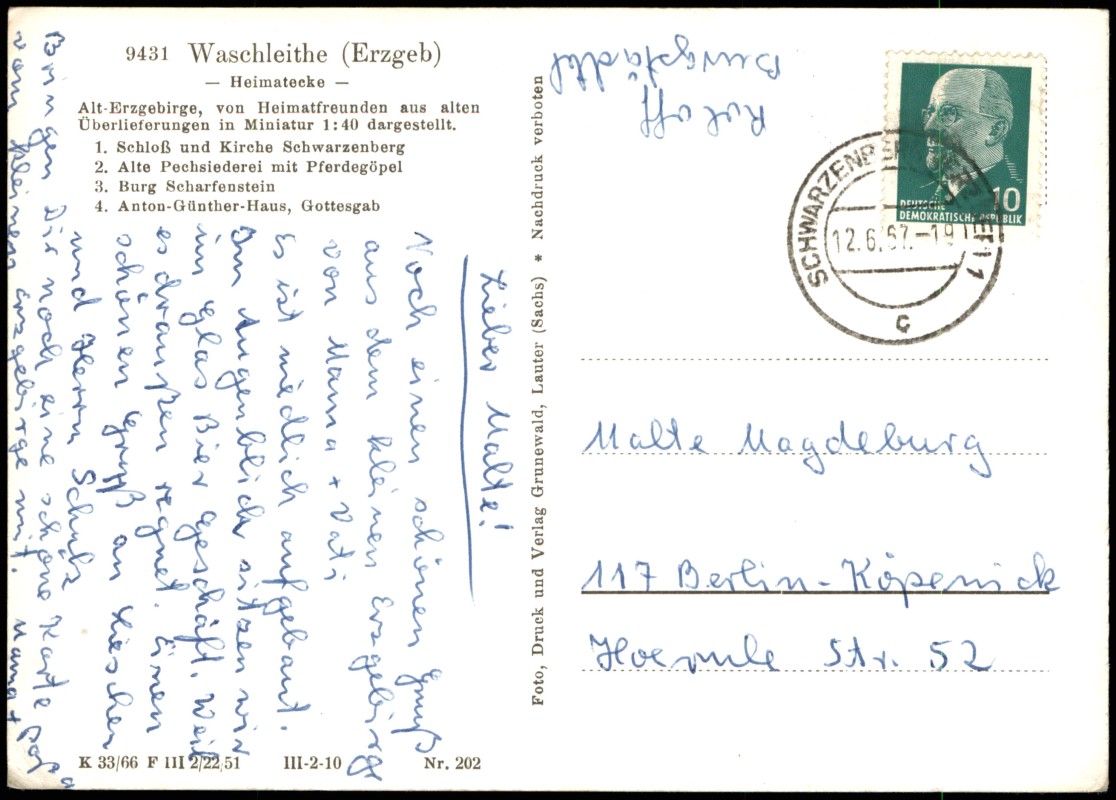 9431 Waschleithe (Erzgeb)
— Heimatecke —
Alt-Erzgebirge, von Heimatfreunden aus alten
Überlieferungen in Miniatur 1:40 dargestellt.
1. Schloß und Kirche Schwarzenberg
2. Alte Pechsiederei mit Pferdegöpel
3. Burg Scharfenstein
4. Anton-Günther-Haus, Gottesgab
Lieber Malte!
Noch einen schönen Gruß
aus dem kleinen Erzgebirge
von Mama + Vati
Es ist niedlich aufgebaut.
Im Augenblick sitzen wir
im Glas Bier Geschäft. Weil
es draußen regnet. Einen
schönen Gruß an Lieschen
und Herrn Schulz
Bringen Dir noch eine schöne Karte
vom kleinen Erzgebirge mit. Mama + Papa
K 33/66 F III 2/22,51 III-2-10 Nr. 202
Foto, Druck und Verlag Grunewald, Lauter (Sachs) * Nachdruck verboten
Burgstädtel
DEUTSCHE 10
DEMOKRATISCHE REPUBLIK
SCHWARZENBERG
12.6.67.-19
c
Malte Magdeburg
117 Berlin-Köpenick
Hoernle Str. 52